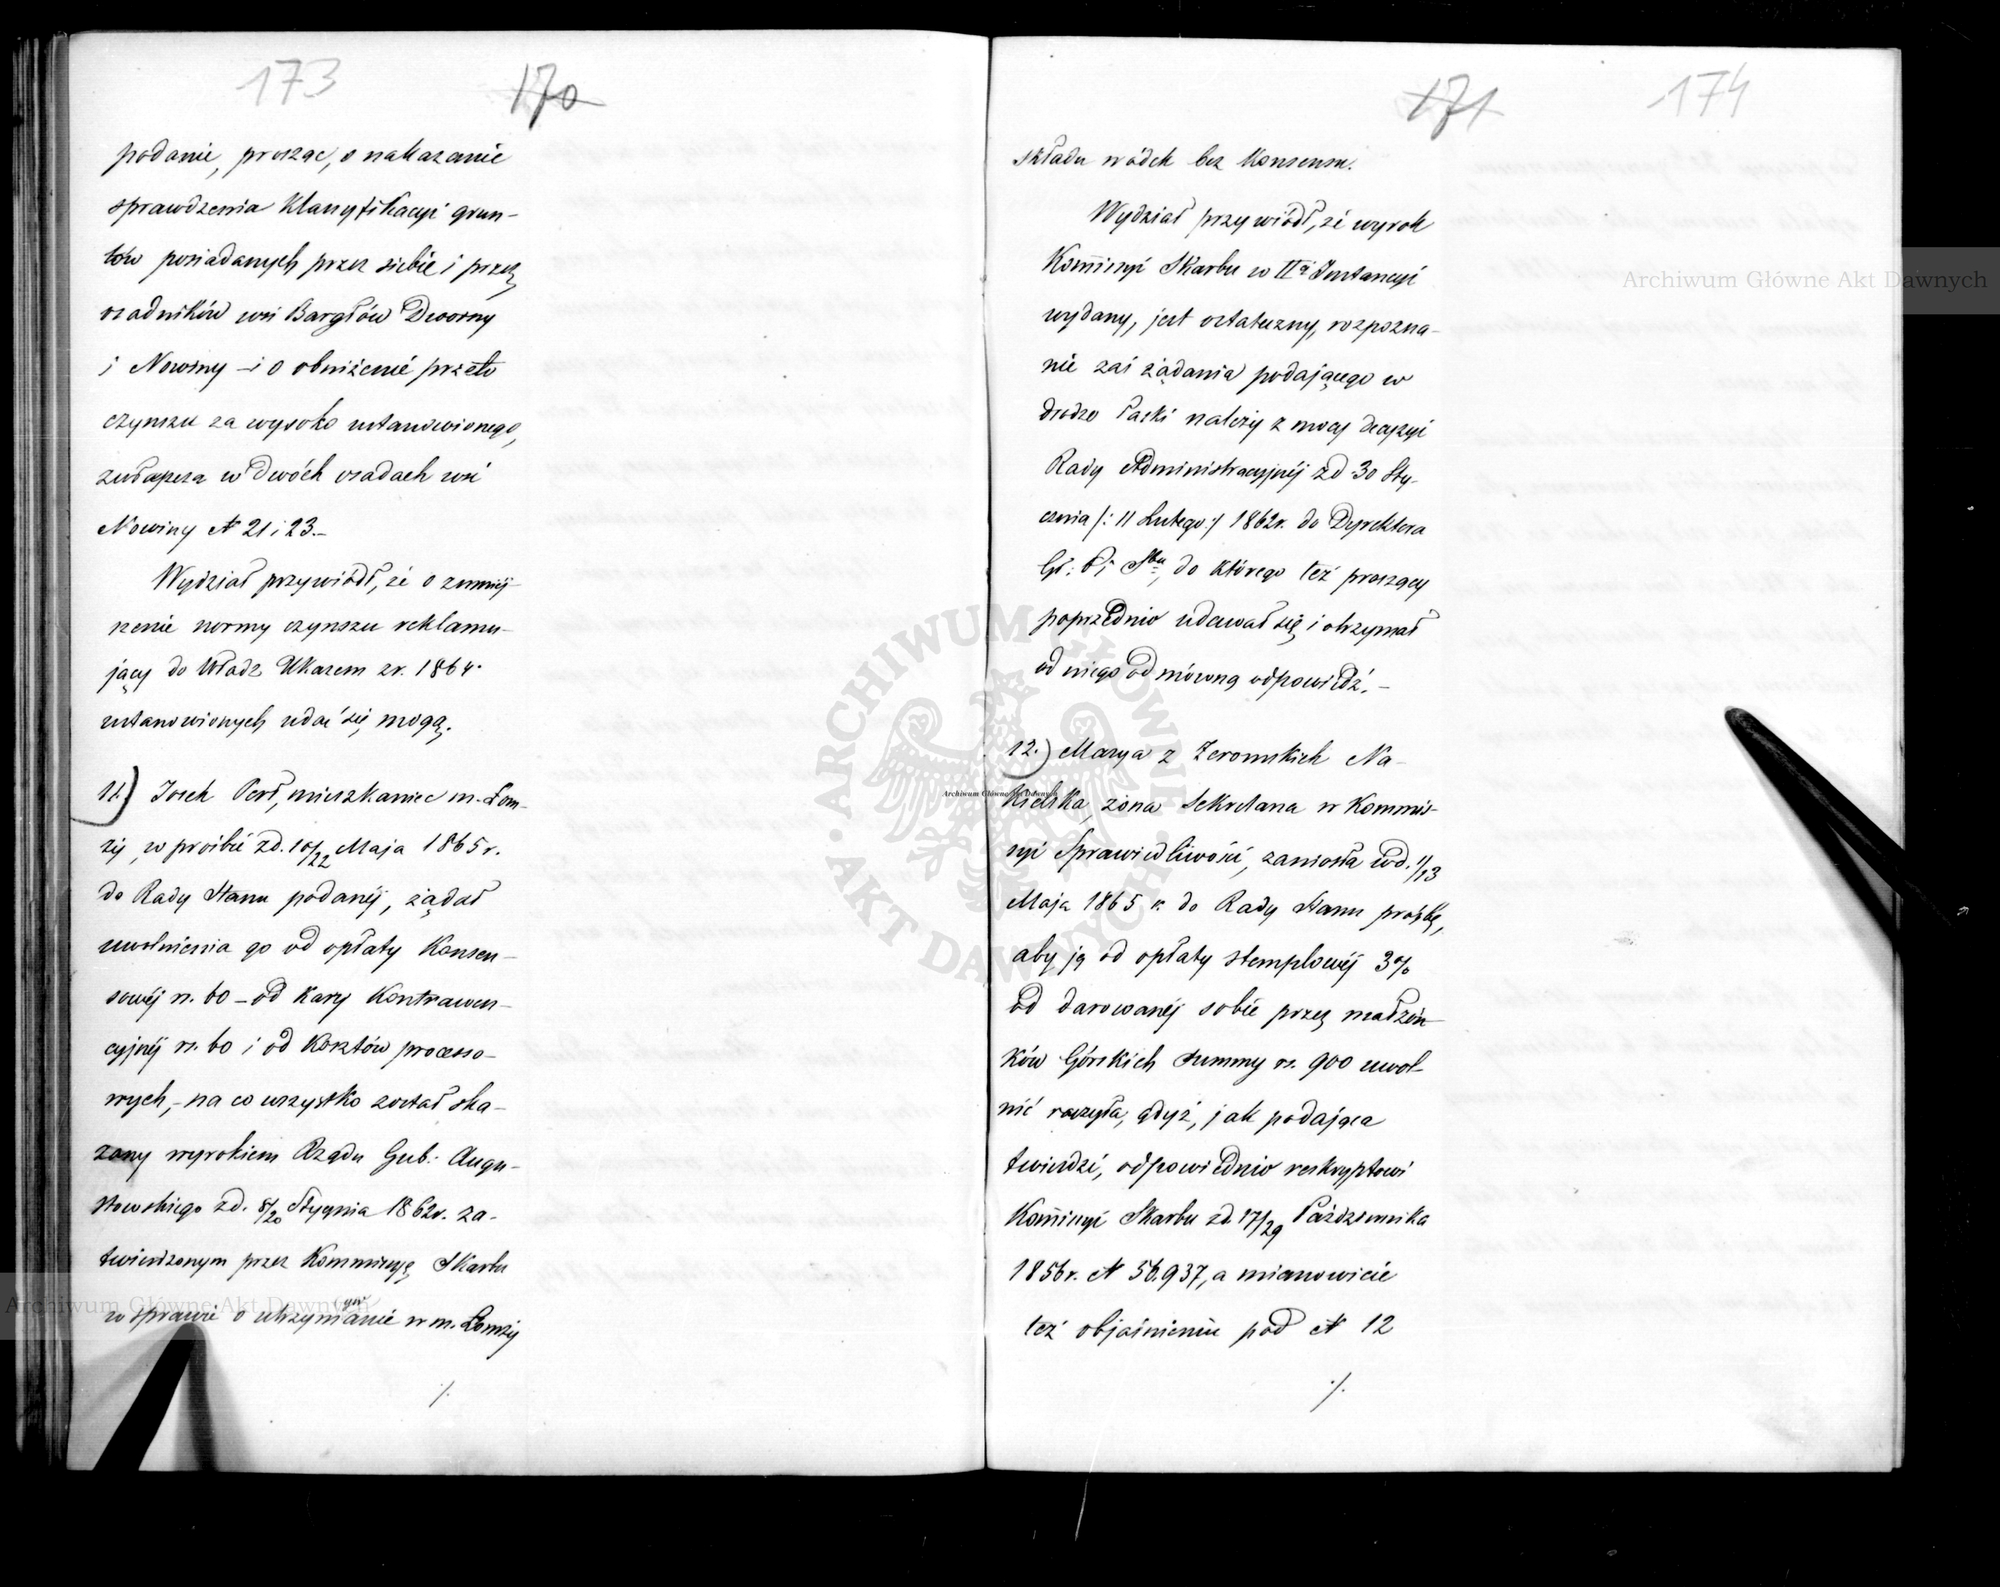 173 170
podanie, prosząc, o nakazanie
sprawdzenia Klassyfikacyi grun-
tów posiadanych przez siebie i przez
osadników wsi Bargłów Dworny
i Nowiny – i o obniżenie przeto
czynszu za wysoko ustanowionego,
zwłaszcza w dwóch osadach wsi
Nowiny N 21 i 23.–
Wydział przywiódł, że o zmniej-
szenie normy czynszu reklamu-
jący do Władz Ukazem z r. 1864
ustanowionych udać się mogą.
11.) Josek Perł, mieszkaniec m. Łom-
ży, w prośbie z d. 10/22 Maja 1865 r.
do Rady Stanu podanéj, żądał
uwolnienia go od opłaty Konsen-
sowéj rs. 60 – od Kary Kontrawen-
cyjnéj rs. 60 i od Kosztów processo-
wych, – na co wszystko został ska-
zany wyrokiem Rządu Gub: Augu-
stowskiego z d. 8/20 Stycznia 1862 r. za-
twierdzonym przez Kommissyę Skarbu
w sprawie o utrzymanie w m. Łomży
./.
171 174
składu wódek bez Konsensu.
Wydział przywiódł, że wyrok
Kom̄issyi Skarbu w IIéj Instancyi
wydany, jest ostateczny, rozpozna-
nie zaś żądania podającego w
drodze łaski należy z mocy decyzyi
Rady Administracyjnéj z d 30 Sty-
cznia /: 11 Lutego :/ 1862 r. do Dyrektora
Gł: P. Sbu, do którego też proszący
poprzednio udawał się i otrzymał
od niego odmówną odpowiedź. –
12.) Marya z Żeromskich Na-
kielska, żona Sekretarza w Kommis-
syi Sprawiedliwości, zaniosła w d. 1/13
Maja 1865 r. do Rady Stanu prośbę,
aby ją od opłaty stemplowéj 3%
od darowanéj sobie przez małżon-
ków Górskich summy rs. 900 uwol-
nić raczyła, gdyż, jak podająca
twierdzi, odpowiednio reskryptowi
Kom̄issyi Skarbu z d. 17/29 Października
1856 r. N 56.937, a mianowicie
też objaśnieniu pod N 12
./.
Archiwum Główne Akt Dawnych
Archiwum Główne Akt Dawnych
Archiwum Główne Akt Dawnych
ARCHIWUM GŁÓWNE AKT DAWNYCH